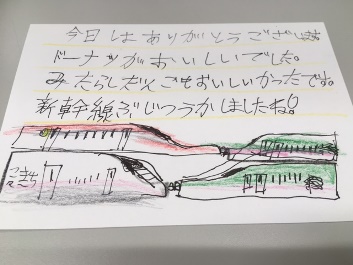 今日はありがとうございます
ドーナツがおいしいでした。
みたらしだんごもおいしいかったです。
新幹線ぶじつうかしましたね!
こまち